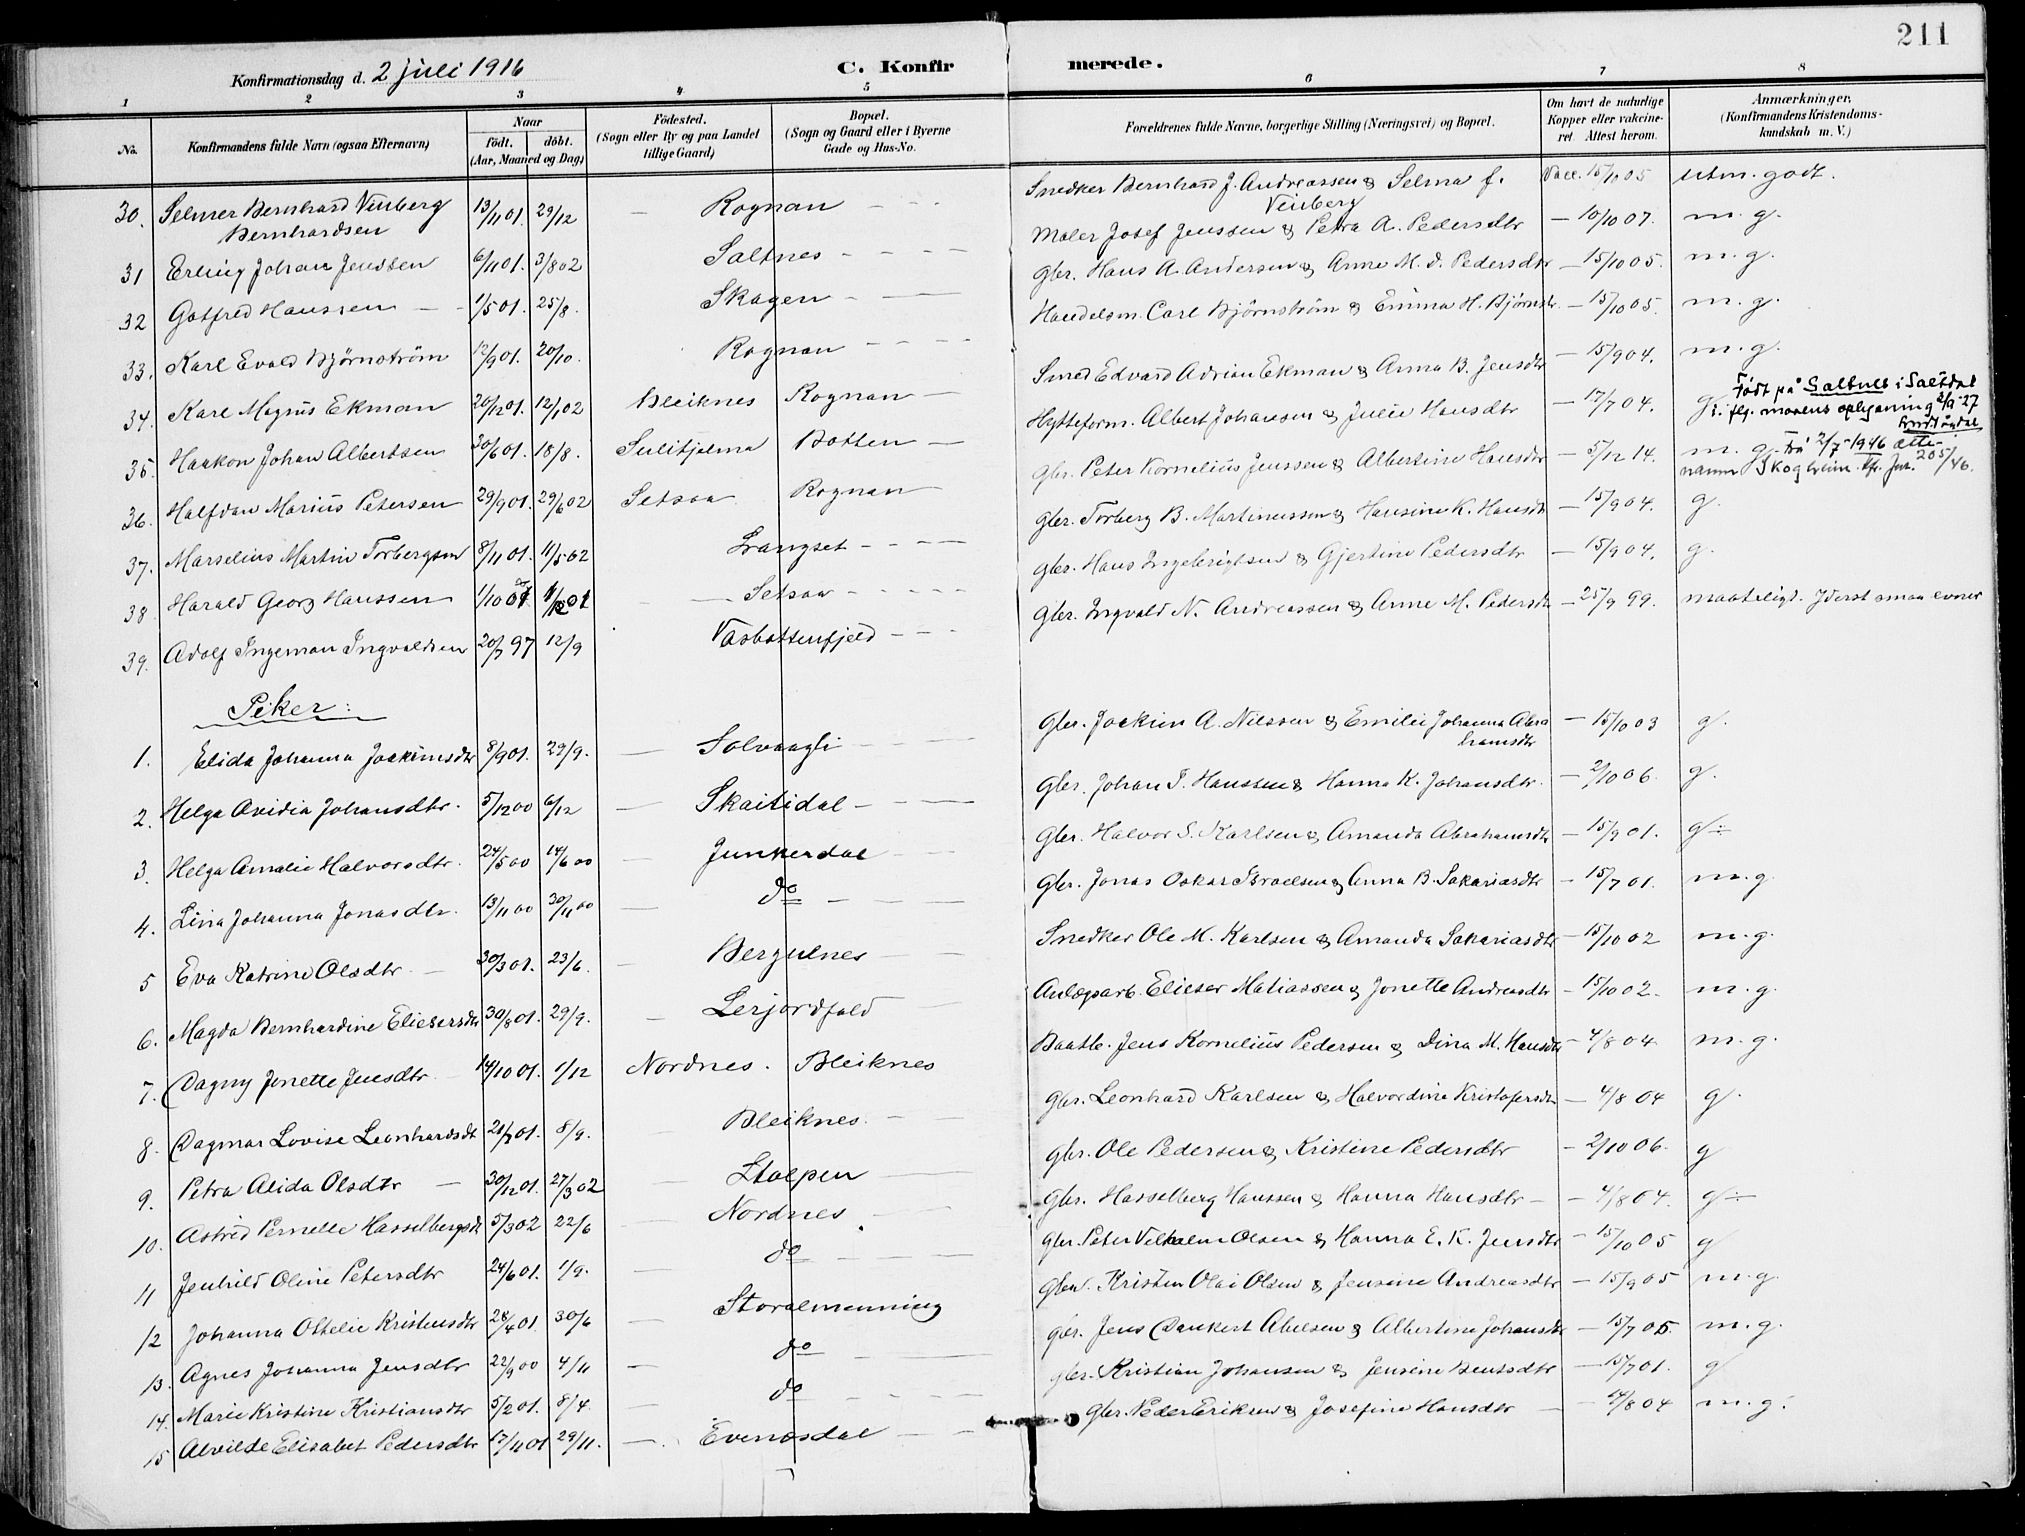 211
Konfirmationsdag d. 2 juli 1916
C. Konfirmerede.
1 2 3 4 5 6 7 8
No. Konfirmandens fulde Navn (ogsaa Efternavn) Naar født. døbt. (Aar, Maaned og Dag) Fødested. (Sogn eller By og paa Landet tillige Gaard) Bopæl. (Sogn og Gaard eller i Byerne Gade og Hus-No. Forældrenes fulde Navne, borgerlige Stilling (Næringsvei) og Bopæl. Om havt de naturlige Kopper eller vakcineret. Attest herom. Anmærkninger. (Konfirmandens Kristendomskundskab m. V.)
30. Selmer Bernhard Vinberg Bernhardsen 13/11 01. 29/12 — Rognan - - - Snedker Bernhard J. Andreassen & Selma f. Vinberg Vacc. 15/10 05 utm. godt.
31 Erling Johan Jenssen 6/11 01. 3/8 02 Saltnes - - - Maler Josef Jenssen & Petra A. Pedersdtr — 10/10 07. m. g.
32 Gotfred Hanssen 1/5 01. 25/8. Skagen - — Gbr. Hans A. Andersen & Anne M. D. Pedersdtr — 15/10 05. m. g.
33. Karl Evald Bjørnstrøm 12/9 01. 20/10. Rognan - - - Handelsm. Carl Bjørnstrøm & Emma H. Bjørnstr. — 15/10 05. m. g.
34. Karl Magnus Ekman 20/12 01. 12/1 02 Bleiknes Rognan — Smed Edvard Adrian Ekman & Anna B. Jensdtr — 15/9 04. m. g.
35. Haakon Johan Albertsen 30/6 01. 18/8. Sulitjelma Botten — Hytteform. Albert Johansen & Julie Hansdtr — 17/7 04. g. Født på Saltnes i Saltdal i. flg. morens oplysning 2/9-27
36. Halfdan Marius Petersen 29/9 01. 29/6 02 Setsaa Rognan — Gbr. Peter Kornelius Jenssen & Albertine Hansdtr — 5/12 14. m. g. Frå 2/7-1946 ættenamn Skogheim. Kfr. Jnr. 205/46.
37. Marselius Martin Torbergsen 8/11 01. 11/5 02 Langset - - - Gbr. Torberg B. Martinussen & Hansine K. Hansdtr — 15/9 04. g.
38 Harald Georg Hanssen 1/10 01 1/12 01 — Setsaa - - - Gbr. Hans Ingebrigtsen & Gjertine Pedersdtr — 15/9 04. g.
39. Adolf Ingeman Ingvaldsen 20/7 97 12/9 Vasbottenfjeld - - - Gbr. Ingvald N. Andreassen & Anne M. Pedersdtr — 25/9 99. maateligt. Yderst smaa evner
Piker:
1. Elida Johanna Joakimsdtr 8/9 01. 29/9. — Solvaagli - - - Gbr. Joakim A. Nilssen & Emilie Johanna Abrahamsdtr — 15/10 03 g.
2. Helga Ovidia Johansdtr. 5/12 00 6/12 — Skaitidal - - - Gbr. Johan T. Hanssen & Hanna K. Johansdtr. — 2/10 06. g.
3. Helga Amalie Halvorsdtr. 24/5 00 14/6 00 — Junkerdal — Gbr. Halvor S. Karlsen & Amanda Abrahamsdtr — 15/9 01. g÷
4. Lina Johanna Jonasdtr. 13/11 00 30/11 00 — do - — Gbr. Jonas Oskar Israelsen & Anna B. Sakariasdtr — 15/7 01. m. g.
5 Eva Katrine Olsdtr. — 30/3 01. 23/6. — Bergulnes — Snedker Ole M. Karlsen & Amanda Sakariasdtr — 15/10 02 m. g.
6. Magda Bernhardine Eliesersdtr 30/8 01. 29/9. — Lerjordfald — Anlægsarb. Elieser Matiassen & Jonette Andreasdtr — 15/10 02. m. g.
7. Dagny Jonette Jensdtr. 14/10 01. 1/12 Nordnes. Bleiknes Baatb. Jens Kornelius Pedersen & Dina M. Hansdtr — 4/8 04 m. g.
8. Dagmar Lovise Leonhardsdt 21/7 01. 8/9. — Bleiknes. — Gbr. Leonhard Karlsen & Halvordine Kristofersdtr — 4/8 04 g.
9. Petra Alida Olsdtr — 30/12 01. 27/3 02 — Stolpen — Gbr. Ole Pedersen & Kristine Pedersdtr — 2/10 06. g
10. Astrid Pernelle Hasselbergsdt 5/3 02 22/6 — Nordnes — Gbr. Hasselberg Hanssen & Hanna Hansdtr — 4/8 04. g÷
11 Jenhild Oline Petersdtr 24/6 01. 1/9. — do — Gbr. Peter Vilhelm Olsen & Hanna E. K. Jensdtr — 15/10 05 g
12 Johanna Ottelie Kristensdtr 28/4 01. 30/6 Storalmenning Gbr. Kristen Olai Olsen & Jensine Andreasdtr — 15/9 05 m. g.
13. Agnes Johanna Jensdtr 22/9 00 4/11 — do — Gbr. Jens Dankert Abelsen & Albertine Johansdtr — 15/7 05. m. g.
14. Marie Kristine Kristiansdtr 5/2 01. 8/4. — do - - - Gbr. Kristian Johansen & Jensine Bentsdtr — 15/7 01. g
15 Alvilde Elisabet Pedersdtr 17/11 01 29/11. — Evenesdal - - Gbr. Peder Eriksen & Josefine Hansdtr — 4/8 04 m. g.